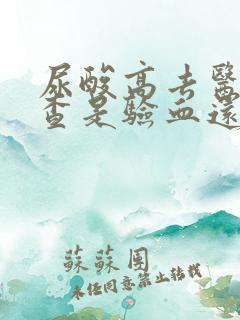 尿酸高去醫
查是驗血還
蘇蘇園
未任同意禁止转载